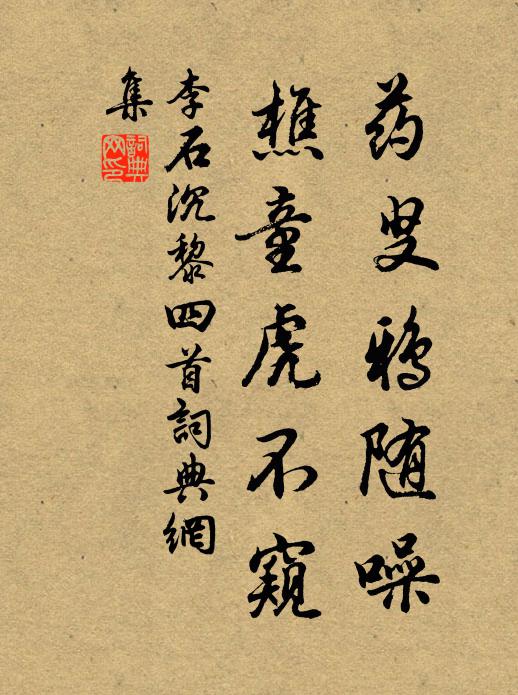 药叟鸦随噪
樵童虎不窥
李石沉黎四首詞典網
集
詞典
网印